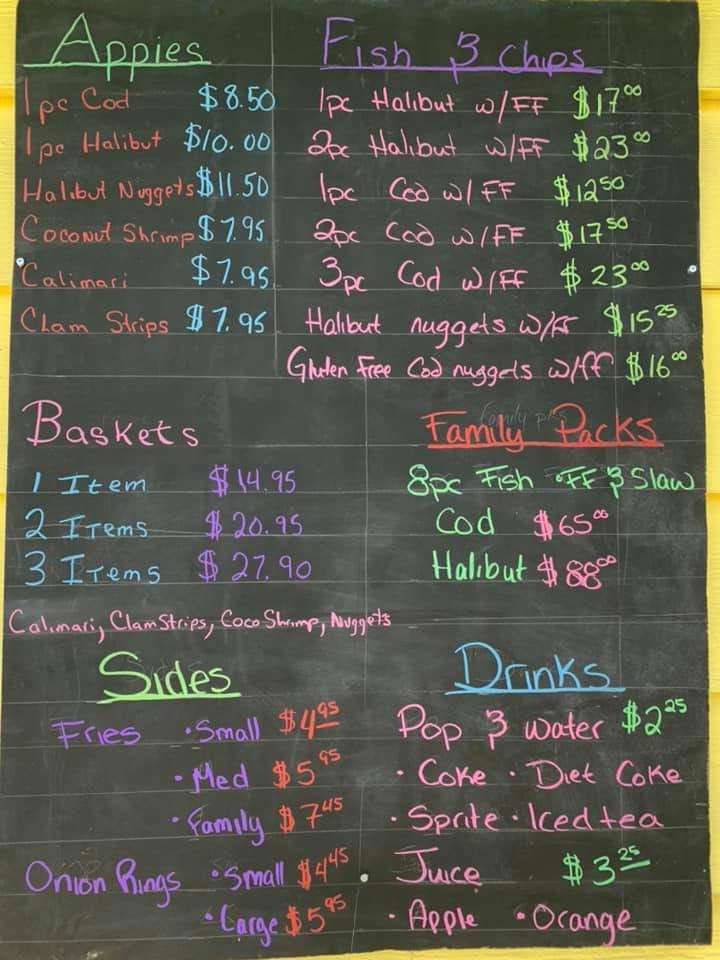 Appies
1pc Cod $8.50
1pc Halibut $10.00
Halibut Nuggets $11.50
Coconut Shrimp $7.95
Calimari $7.95
Clam Strips $7.95
Fish & Chips
1pc Halibut w/FF $17.00
2pc Halibut w/FF $23.00
1pc Cod w/FF $12.50
2pc Cod w/FF $17.50
3pc Cod w/FF $23.00
Halibut nuggets w/FF $15.25
Gluten Free Cod nuggets w/ff $16.00
Baskets
1 Item $14.95
2 Items $20.95
3 Items $27.90
Calimari, Clam Strips, Coco Shrimp, Nuggets
Family Packs
8pc Fish •FF & Slaw
Cod $65.00
Halibut $88.00
Sides
Fries •Small $4.95
•Med $5.95
•Family $7.45
Onion Rings •Small $4.45
•Large $5.95
Drinks
Pop & water $2.25
•Coke •Diet Coke
•Sprite •Iced tea
Juice $3.25
•Apple •Orange